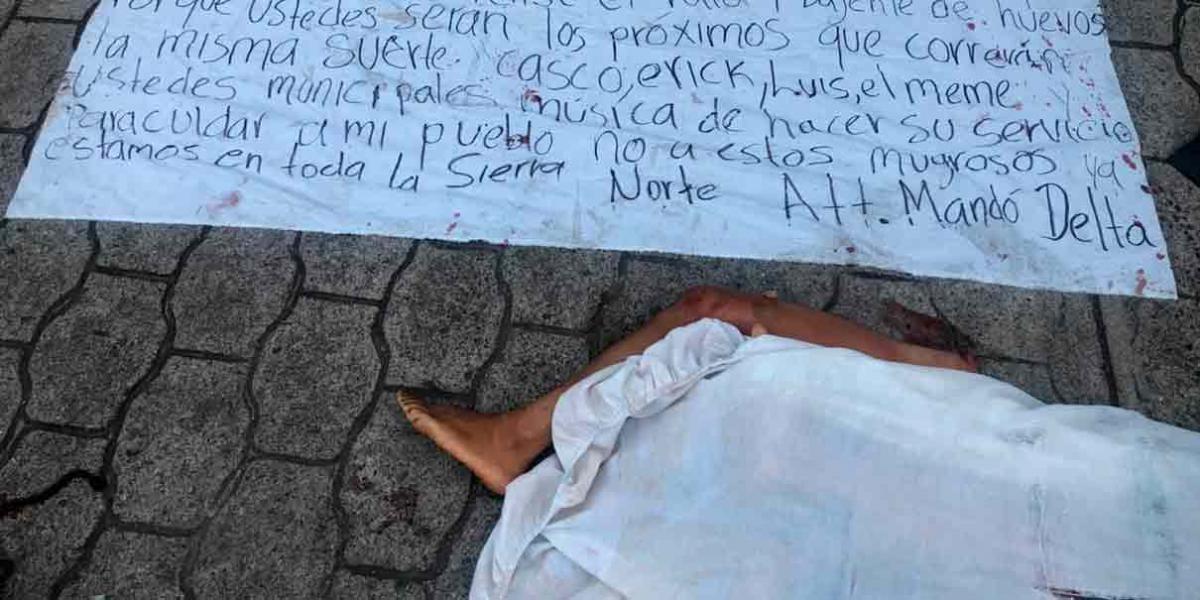 Porque ustedes serán los próximos que correrán
la misma suerte. Casco, erick, Luis, el meme y
Ustedes municipales música de hacer su servicio
Paracuidar a mi pueblo no a estos mugrosos ya
estamos en toda la Sierra Norte Att. Mandó Delta